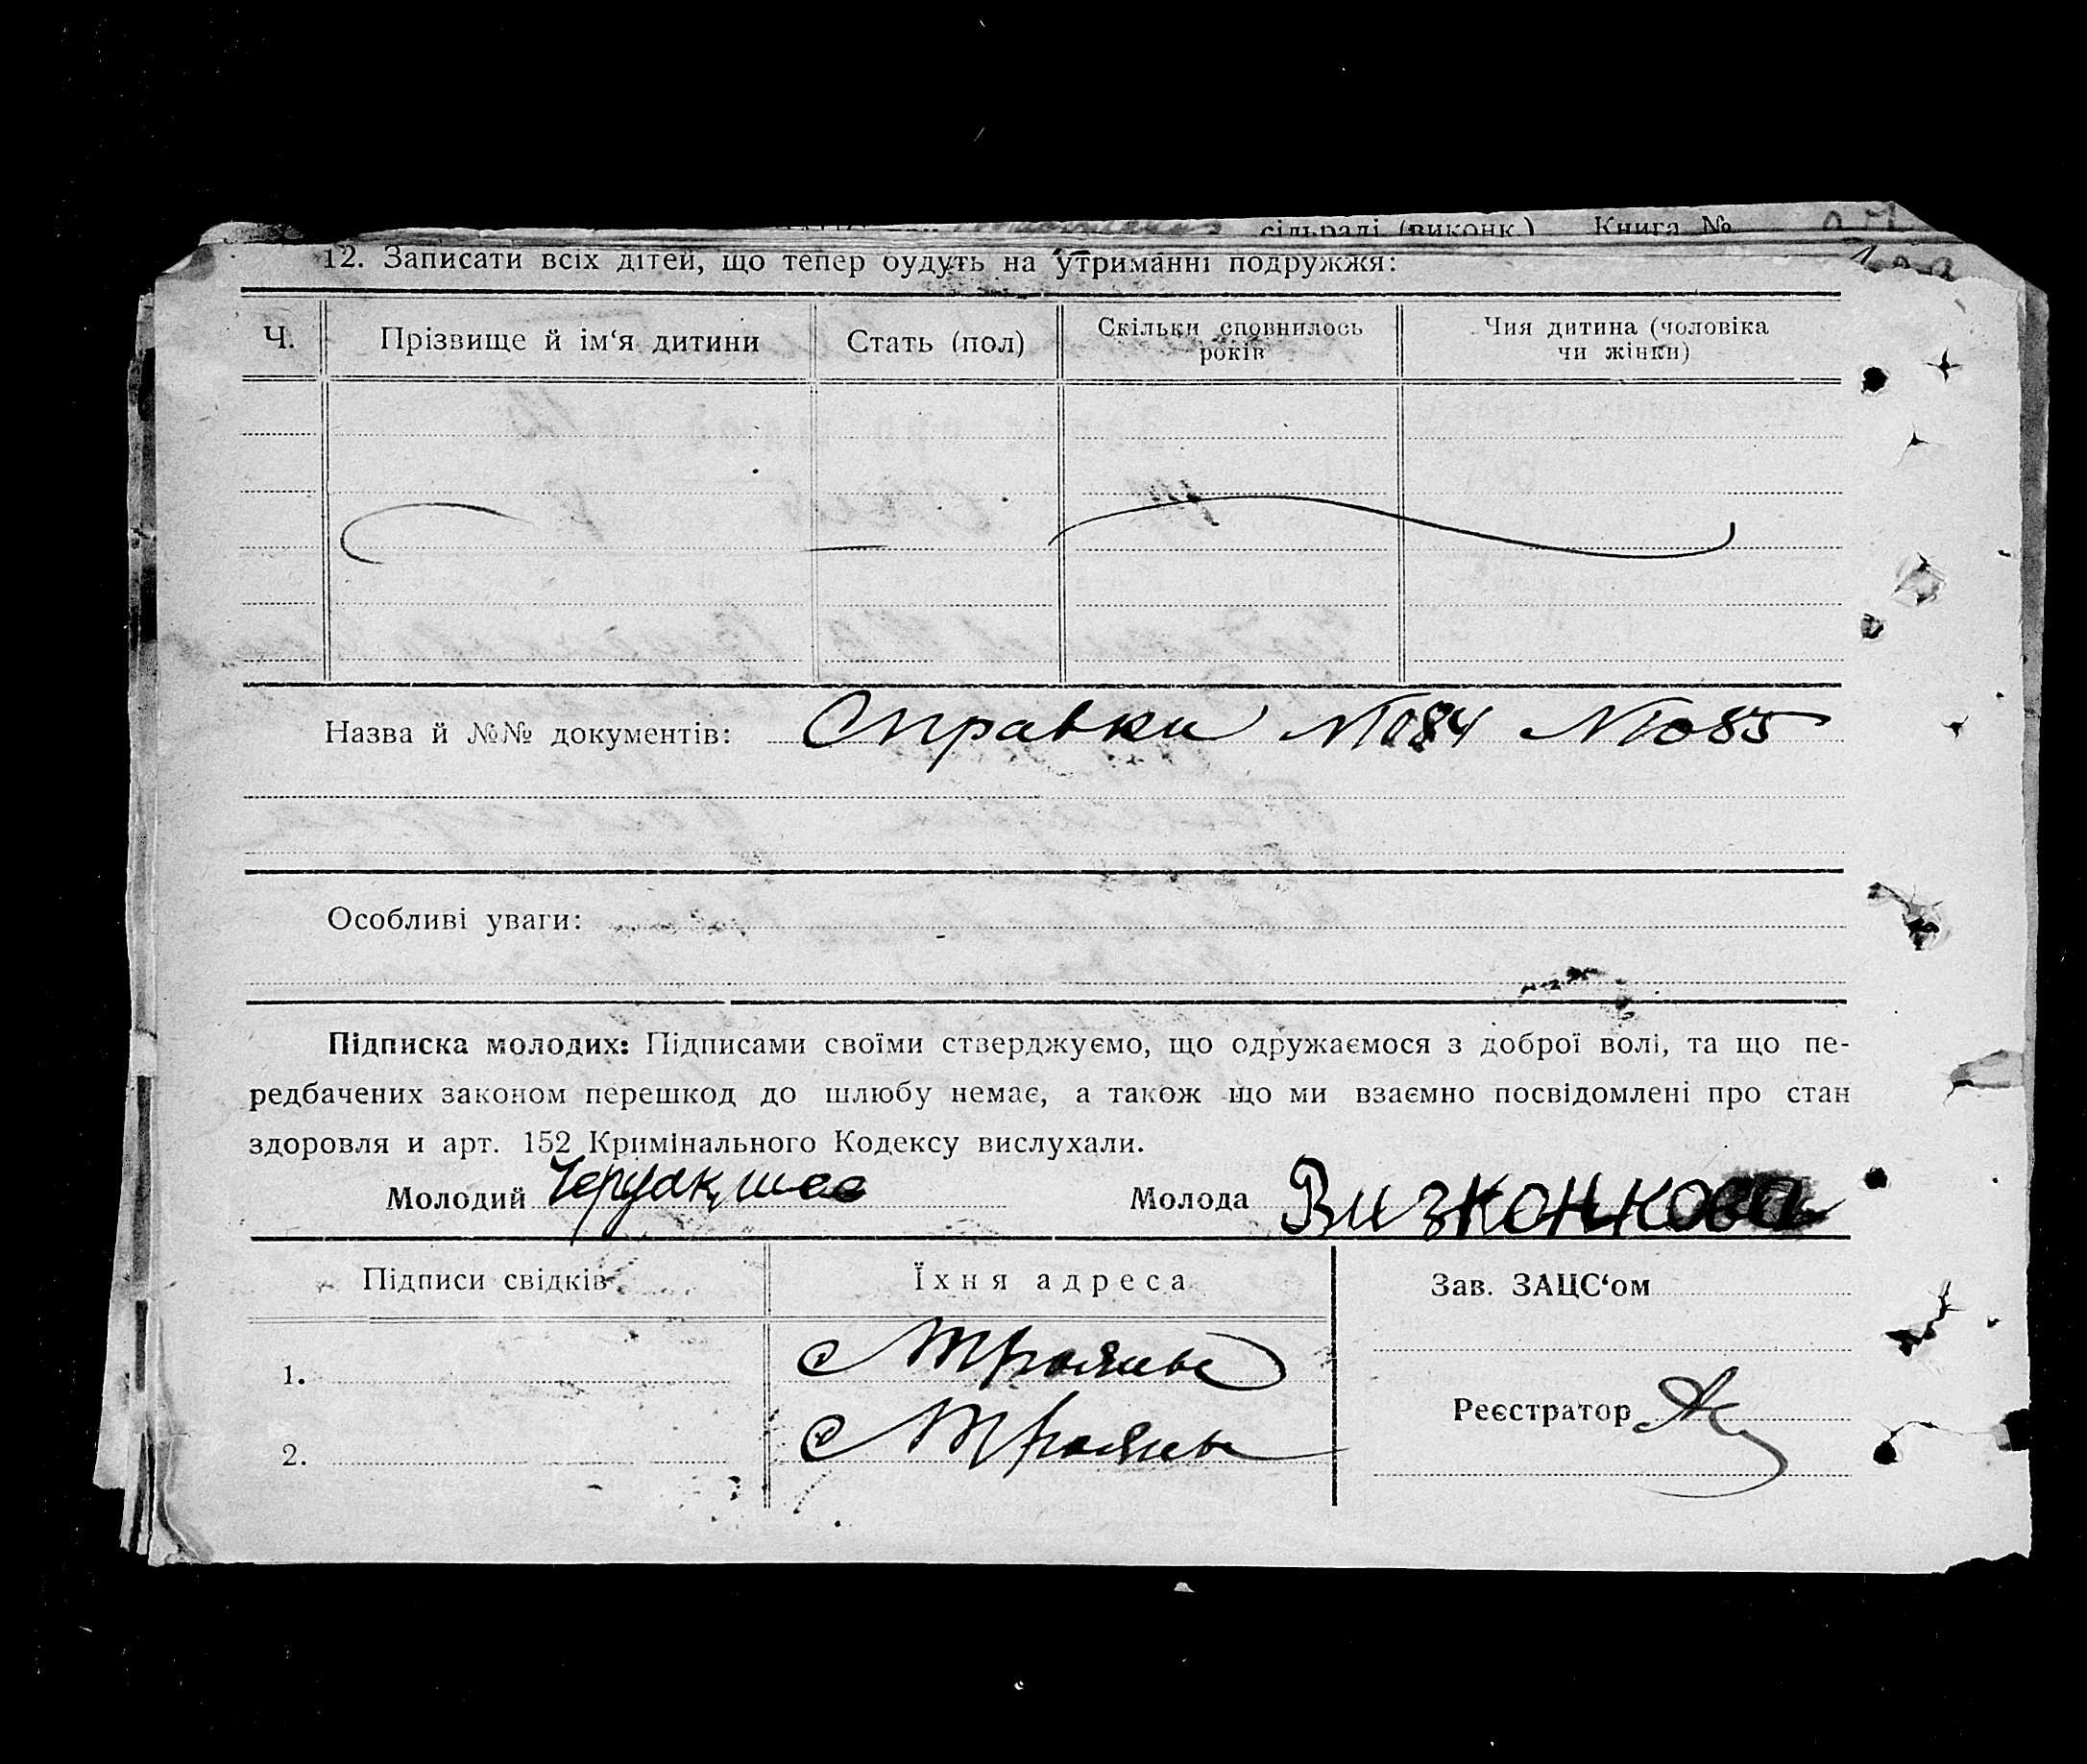 сільраді (виконк.) Книга №
12. Записати всіх дітей, що тепер будуть на утриманні подружжя:
Ч. Прізвище й ім‘я дитини Стать (пол) Скільки сповнилось років Чия дитина (чоловіка чи жінки)
Назва й №№ документів: Справки №1084 №1085
Особливі уваги:
Підписка молодих: Підписами своїми стверджуємо, що одружаємося з доброї волі, та що пе-
редбачених законом перешкод до шлюбу немає, а також що ми взаємно посвідомлені про стан
здоровля и арт. 152 Кримінального Кодексу вислухали.
Молодий Молода
Підписи свідків Їхня адреса Зав. ЗАЦС‘ом
1. с Трояны
Реєстратор
2. с Трояны